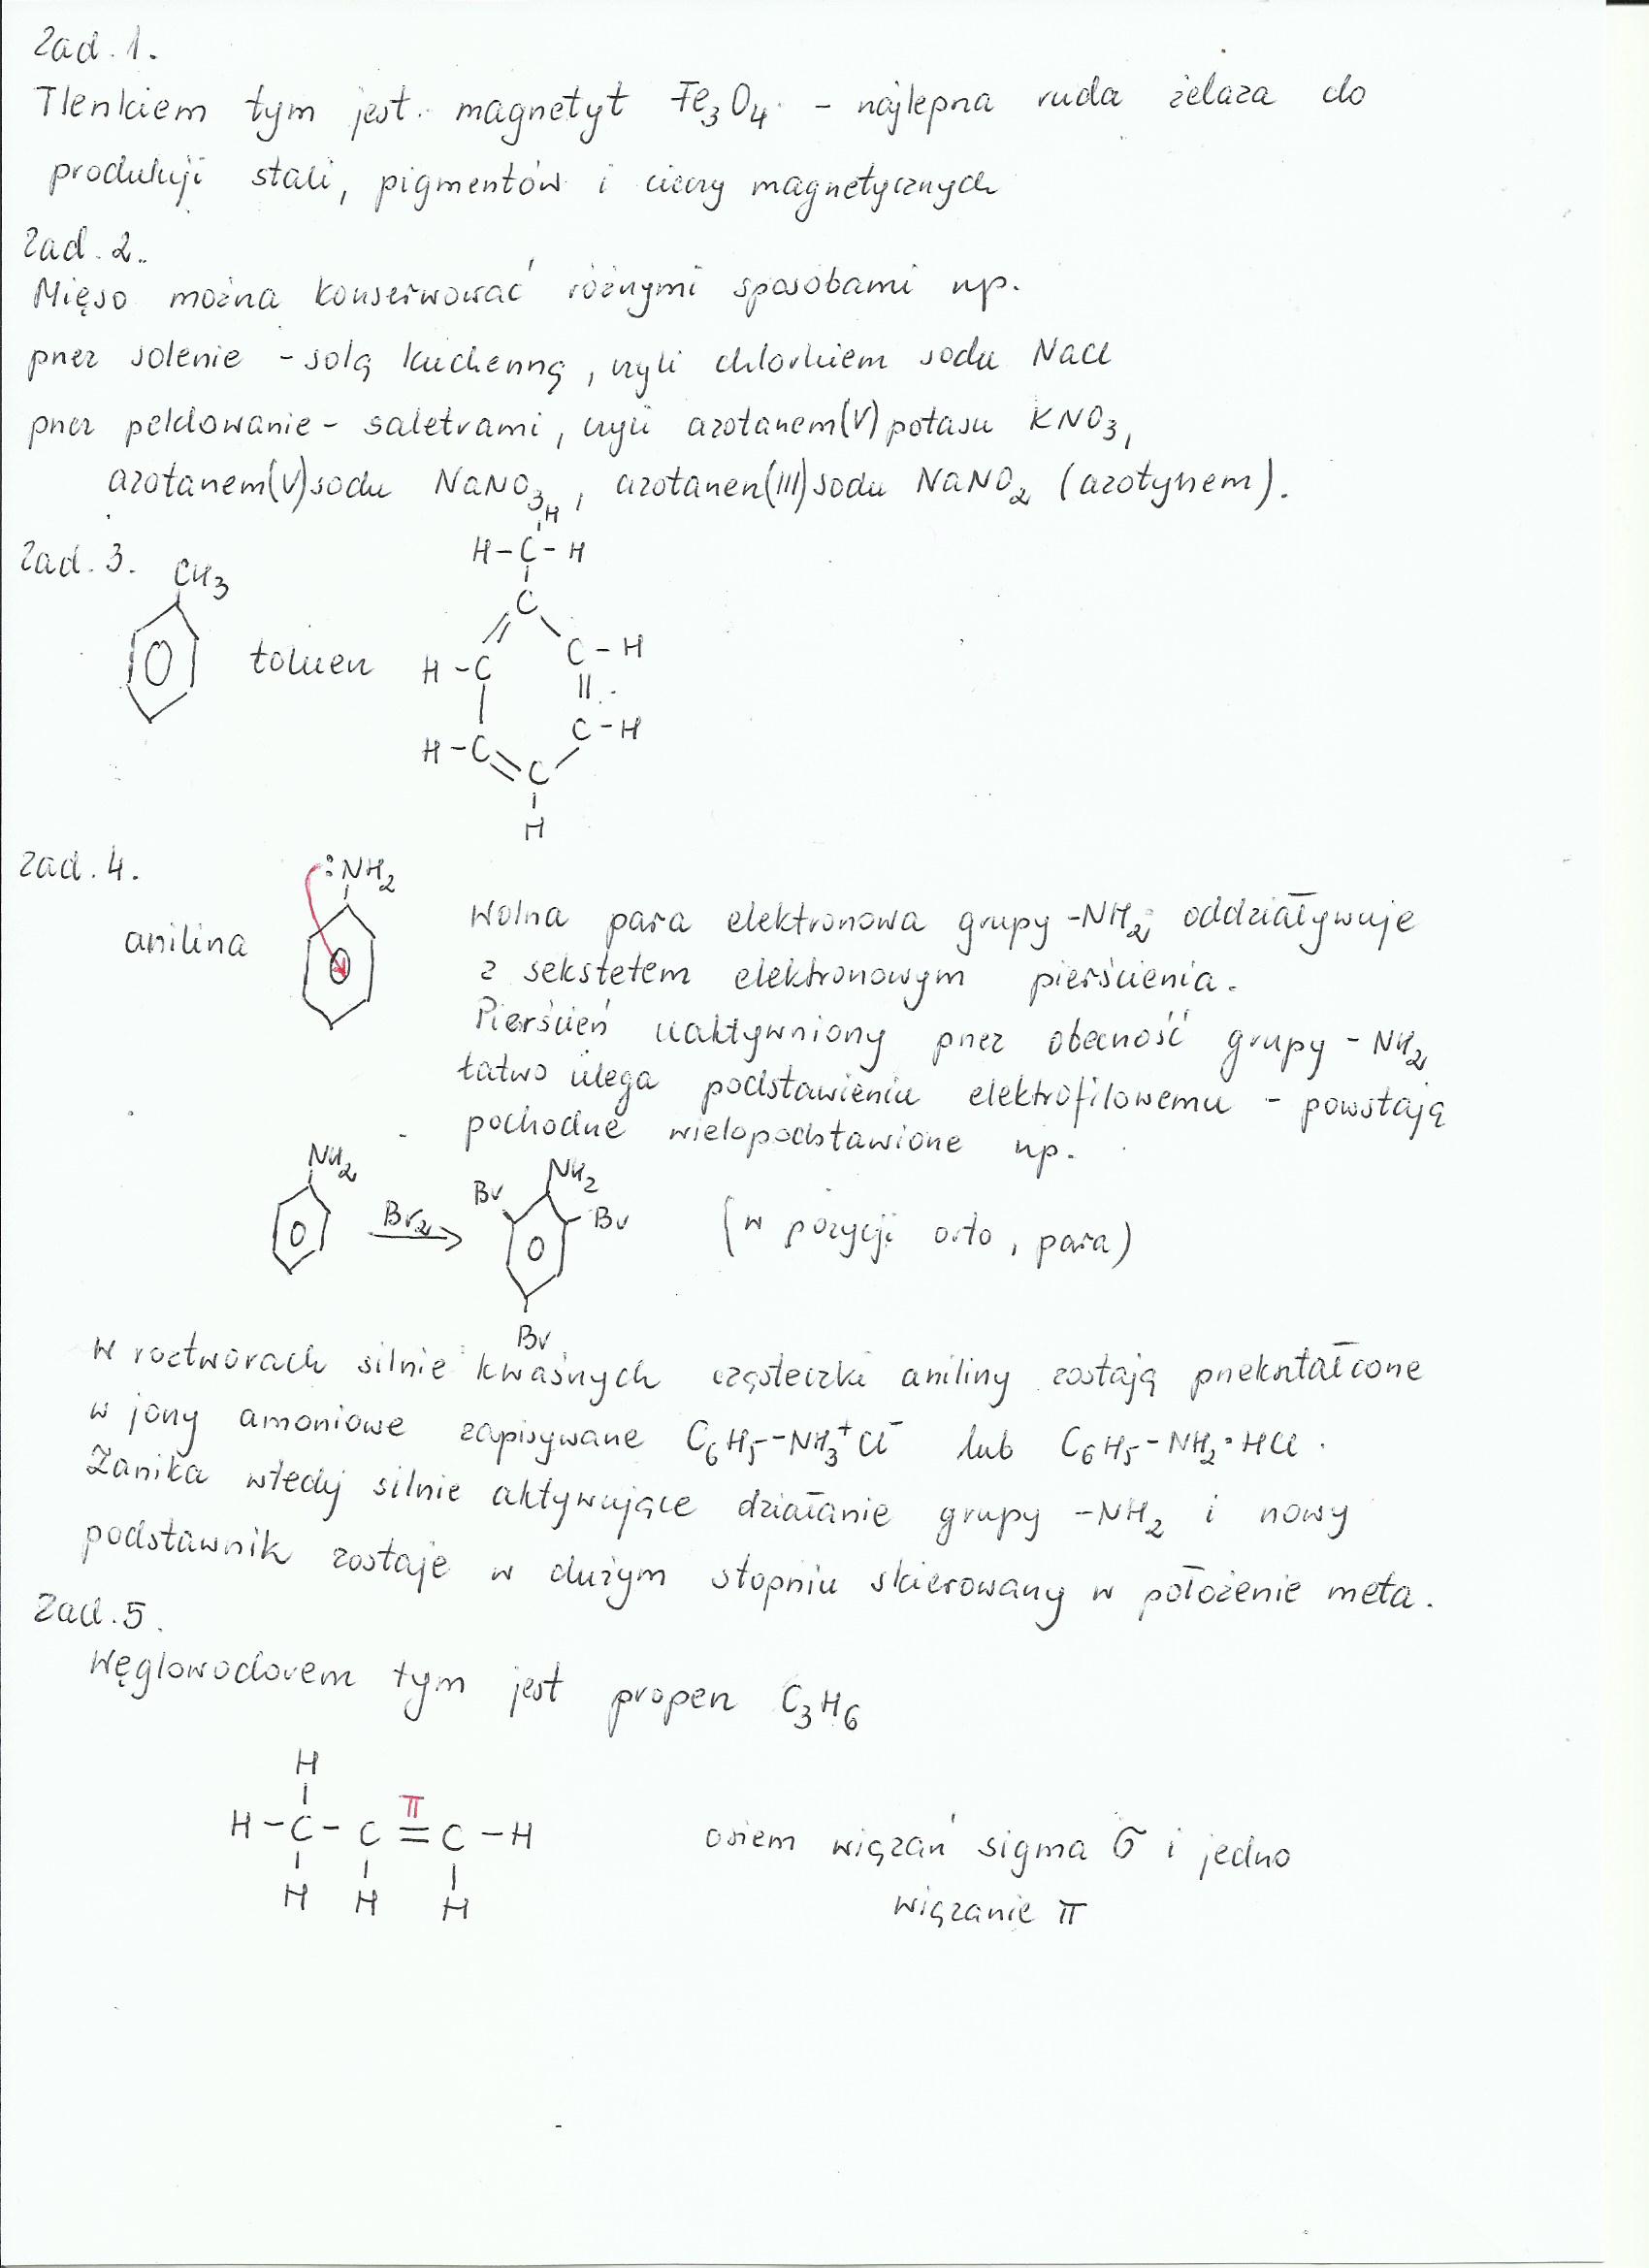 Zad. 1.
Tlenkiem tym jest magnetyt Fe₃O₄ - najlepsza ruda żelaza do
produkcji stali, pigmentów i cieczy magnetycznych
Zad. 2.
Mięso można konserwować różnymi sposobami np.
przez solenie - solą kuchenną, czyli chlorkiem sodu NaCl
przez peklowanie - saletrami, czyli azotanem(V) potasu KNO₃,
azotanem(V) sodu NaNO₃, azotanen(III) sodu NaNO₂ (azotynem).
Zad. 3.
CH₃
toluen
H
H-C-H
C
H-C C-H
H-C C-H
C
H
Zad. 4.
:NH₂
anilina
Wolna para elektronowa grupy -NH₂ oddziaływuje
z sekstetem elektronowym pierścienia.
Pierścień uaktywniony przez obecność grupy -NH₂
łatwo ulega podstawieniu elektrofilowemu - powstają
pochodne wielopodstawione np.
NH₂ Br₂ → Br NH₂ Br (w pozycji orto, para)
Br
W roztworach silnie kwaśnych cząsteczki aniliny zostają przekształcone
w jony amoniowe zapisywane C₆H₅-NH₃⁺Cl⁻ lub C₆H₅-NH₂·HCl.
Zanika wtedy silnie aktywujące działanie grupy -NH₂ i nowy
podstawnik zostaje w dużym stopniu skierowany w położenie meta.
Zad. 5.
Węglowodorem tym jest propen C₃H₆
H
π
H-C-C=C-H
H H H
osiem wiązań sigma σ i jedno
wiązanie π